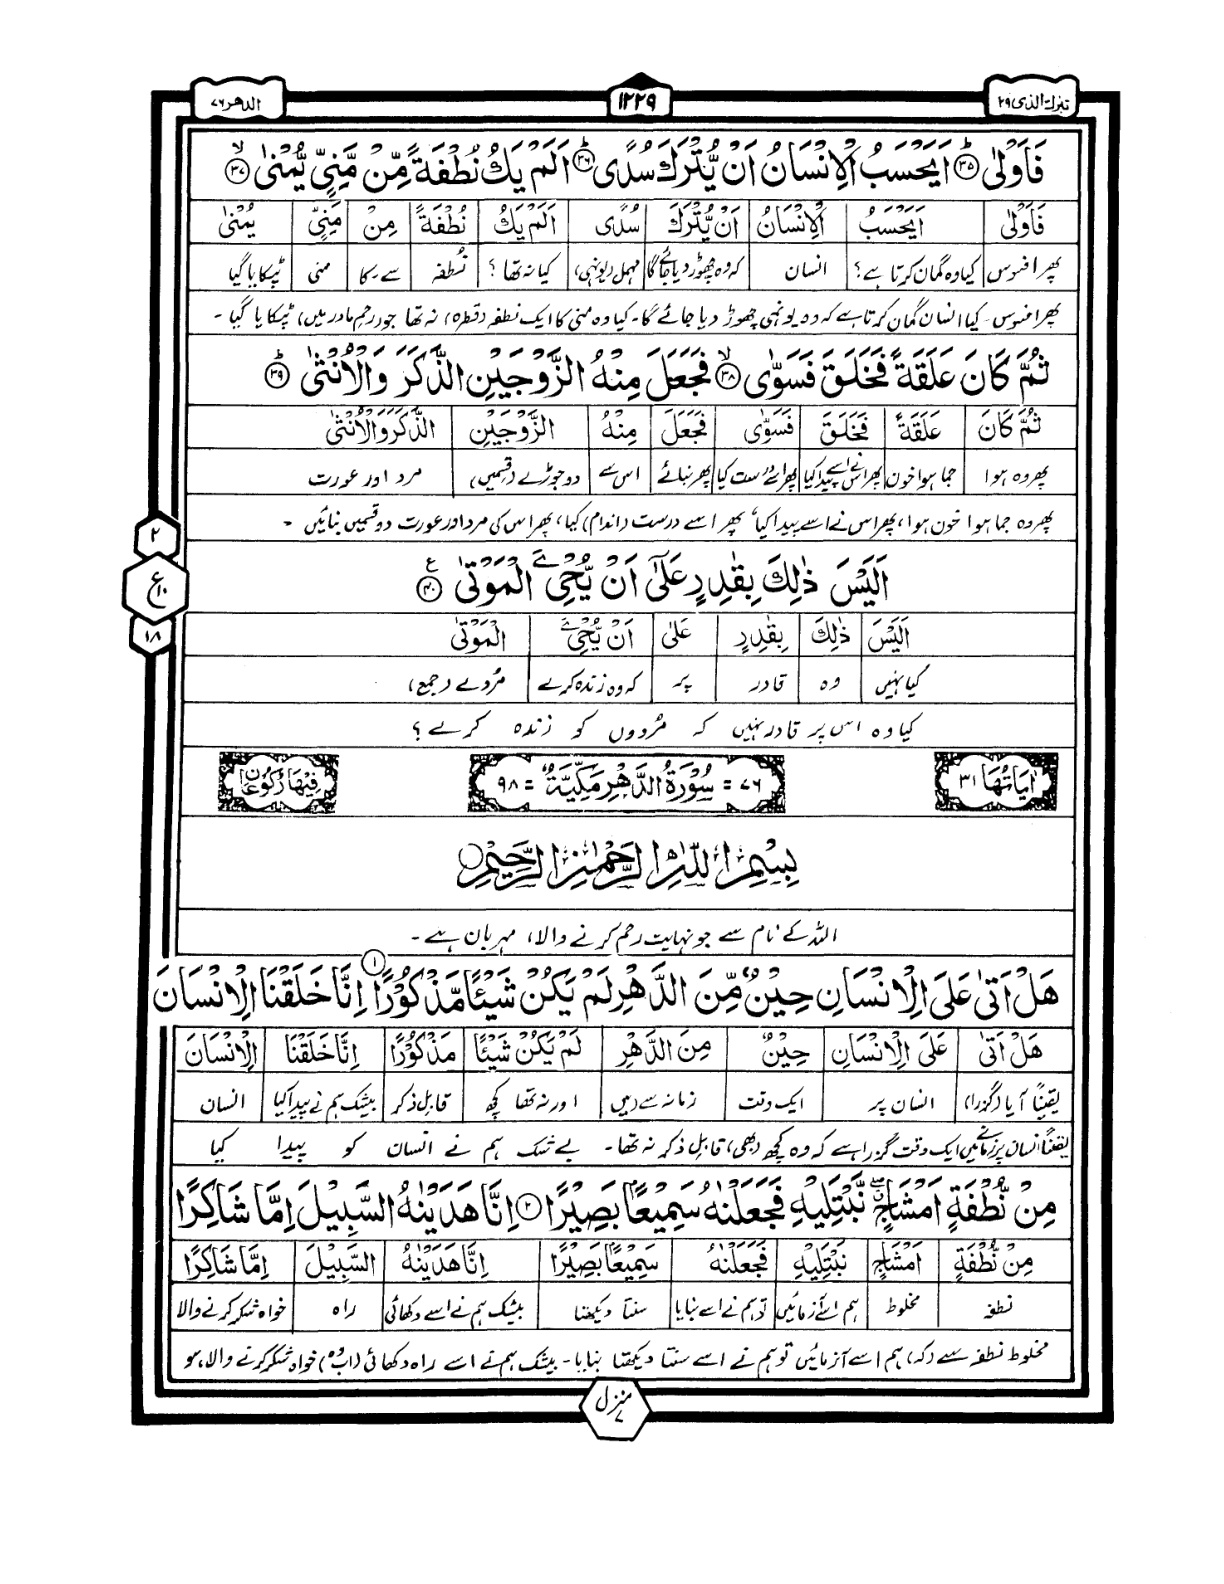 تبٰرك الذی ۲۹
۱۲۲۹
الدهر ۷۶
فَاَوْلٰى ۳۵ اَيَحْسَبُ الْاِنْسَانُ اَنْ يُّتْرَكَ سُدًى ۳۶ اَلَمْ يَكُ نُطْفَةً مِّنْ مَّنِيٍّ يُّمْنٰى ۳۷
فَاَوْلٰى اَيَحْسَبُ الْاِنْسَانُ اَنْ يُّتْرَكَ سُدًى اَلَمْ يَكُ نُطْفَةً مِنْ مَنِيٍّ يُمْنٰى
پھر افسوس کیا وہ گمان کرتا ہے؟ انسان کہ وہ چھوڑ دیا جائے گا مہمل (یونہی) کیا نہ تھا؟ نطفہ سے۔کا منی ٹپکایا گیا
پھر افسوس۔ کیا انسان گمان کرتا ہے کہ وہ یونہی چھوڑ دیا جائے گا۔ کیا وہ منی کا ایک نطفہ (قطرہ) نہ تھا جو (رحم مادر میں) ٹپکایا گیا۔
ثُمَّ كَانَ عَلَقَةً فَخَلَقَ فَسَوّٰى ۳۸ فَجَعَلَ مِنْهُ الزَّوْجَيْنِ الذَّكَرَ وَالْاُنْثٰى ۳۹
ثُمَّ كَانَ عَلَقَةً فَخَلَقَ فَسَوّٰى فَجَعَلَ مِنْهُ الزَّوْجَيْنِ الذَّكَرَ وَالْاُنْثٰى
پھر وہ ہوا جما ہوا خون پھر اس نے اسے پیدا کیا پھر اسے درست کیا پھر بنائے اس سے دو جوڑے (قسمیں) مرد اور عورت
پھر وہ جما ہوا خون ہوا، پھر اس نے اسے پیدا کیا، پھر اسے درست (اندام) کیا، پھر اس کی مرد اور عورت دو قسمیں بنائیں۔
۲
ع
۱۰
۱۸
اَلَيْسَ ذٰلِكَ بِقٰدِرٍ عَلٰٓى اَنْ يُّحْيِۦَ الْمَوْتٰى ۴۰
اَلَيْسَ ذٰلِكَ بِقٰدِرٍ عَلٰى اَنْ يُّحْيِۦَ الْمَوْتٰى
کیا نہیں وہ قادر پر کہ وہ زندہ کرے مُردے (جمع)
کیا وہ اس پر قادر نہیں کہ مُردوں کو زندہ کرے؟
اٰيَاتُهَا ۳۱
۷۶ = سُوْرَةُ الدَّهْرِ مَكِّيَّةٌ = ۹۸
فِيْهَا رُكُوْعَانِ
بِسْمِ اللّٰهِ الرَّحْمٰنِ الرَّحِيْمِ
اللہ کے نام سے جو نہایت رحم کرنے والا، مہربان ہے۔
هَلْ اَتٰى عَلَى الْاِنْسَانِ حِيْنٌ مِّنَ الدَّهْرِ لَمْ يَكُنْ شَيْئًا مَّذْكُوْرًا ۱ اِنَّا خَلَقْنَا الْاِنْسَانَ
هَلْ اَتٰى عَلَى الْاِنْسَانِ حِيْنٌ مِنَ الدَّهْرِ لَمْ يَكُنْ شَيْئًا مَذْكُوْرًا اِنَّا خَلَقْنَا الْاِنْسَانَ
یقیناً آیا (گزرا) انسان پر ایک وقت زمانہ سے (میں) اور نہ تھا کچھ قابلِ ذکر بیشک ہم نے پیدا کیا انسان
یقیناً انسان پر زمانے میں ایک وقت گزرا ہے کہ وہ کچھ (بھی) قابلِ ذکر نہ تھا۔ بے شک ہم نے انسان کو پیدا کیا
مِنْ نُّطْفَةٍ اَمْشَاجٍ نَّبْتَلِيْهِ فَجَعَلْنٰهُ سَمِيْعًۢا بَصِيْرًا ۲ اِنَّا هَدَيْنٰهُ السَّبِيْلَ اِمَّا شَاكِرًا
مِنْ نُّطْفَةٍ اَمْشَاجٍ نَبْتَلِيْهِ فَجَعَلْنٰهُ سَمِيْعًۢا بَصِيْرًا اِنَّا هَدَيْنٰهُ السَّبِيْلَ اِمَّا شَاكِرًا
نطفہ مخلوط ہم اسے آزمائیں تو ہم نے اسے بنایا سنتا دیکھتا بیشک ہم نے اسے دکھائی راہ خواہ شکر کرنے والا
مخلوط نطفہ سے (کہ) ہم اسے آزمائیں تو ہم نے اسے سنتا دیکھتا بنایا۔ بیشک ہم نے اسے راہ دکھائی (اب وہ) خواہ شکر کرنے والا، ہو
منزل ۷